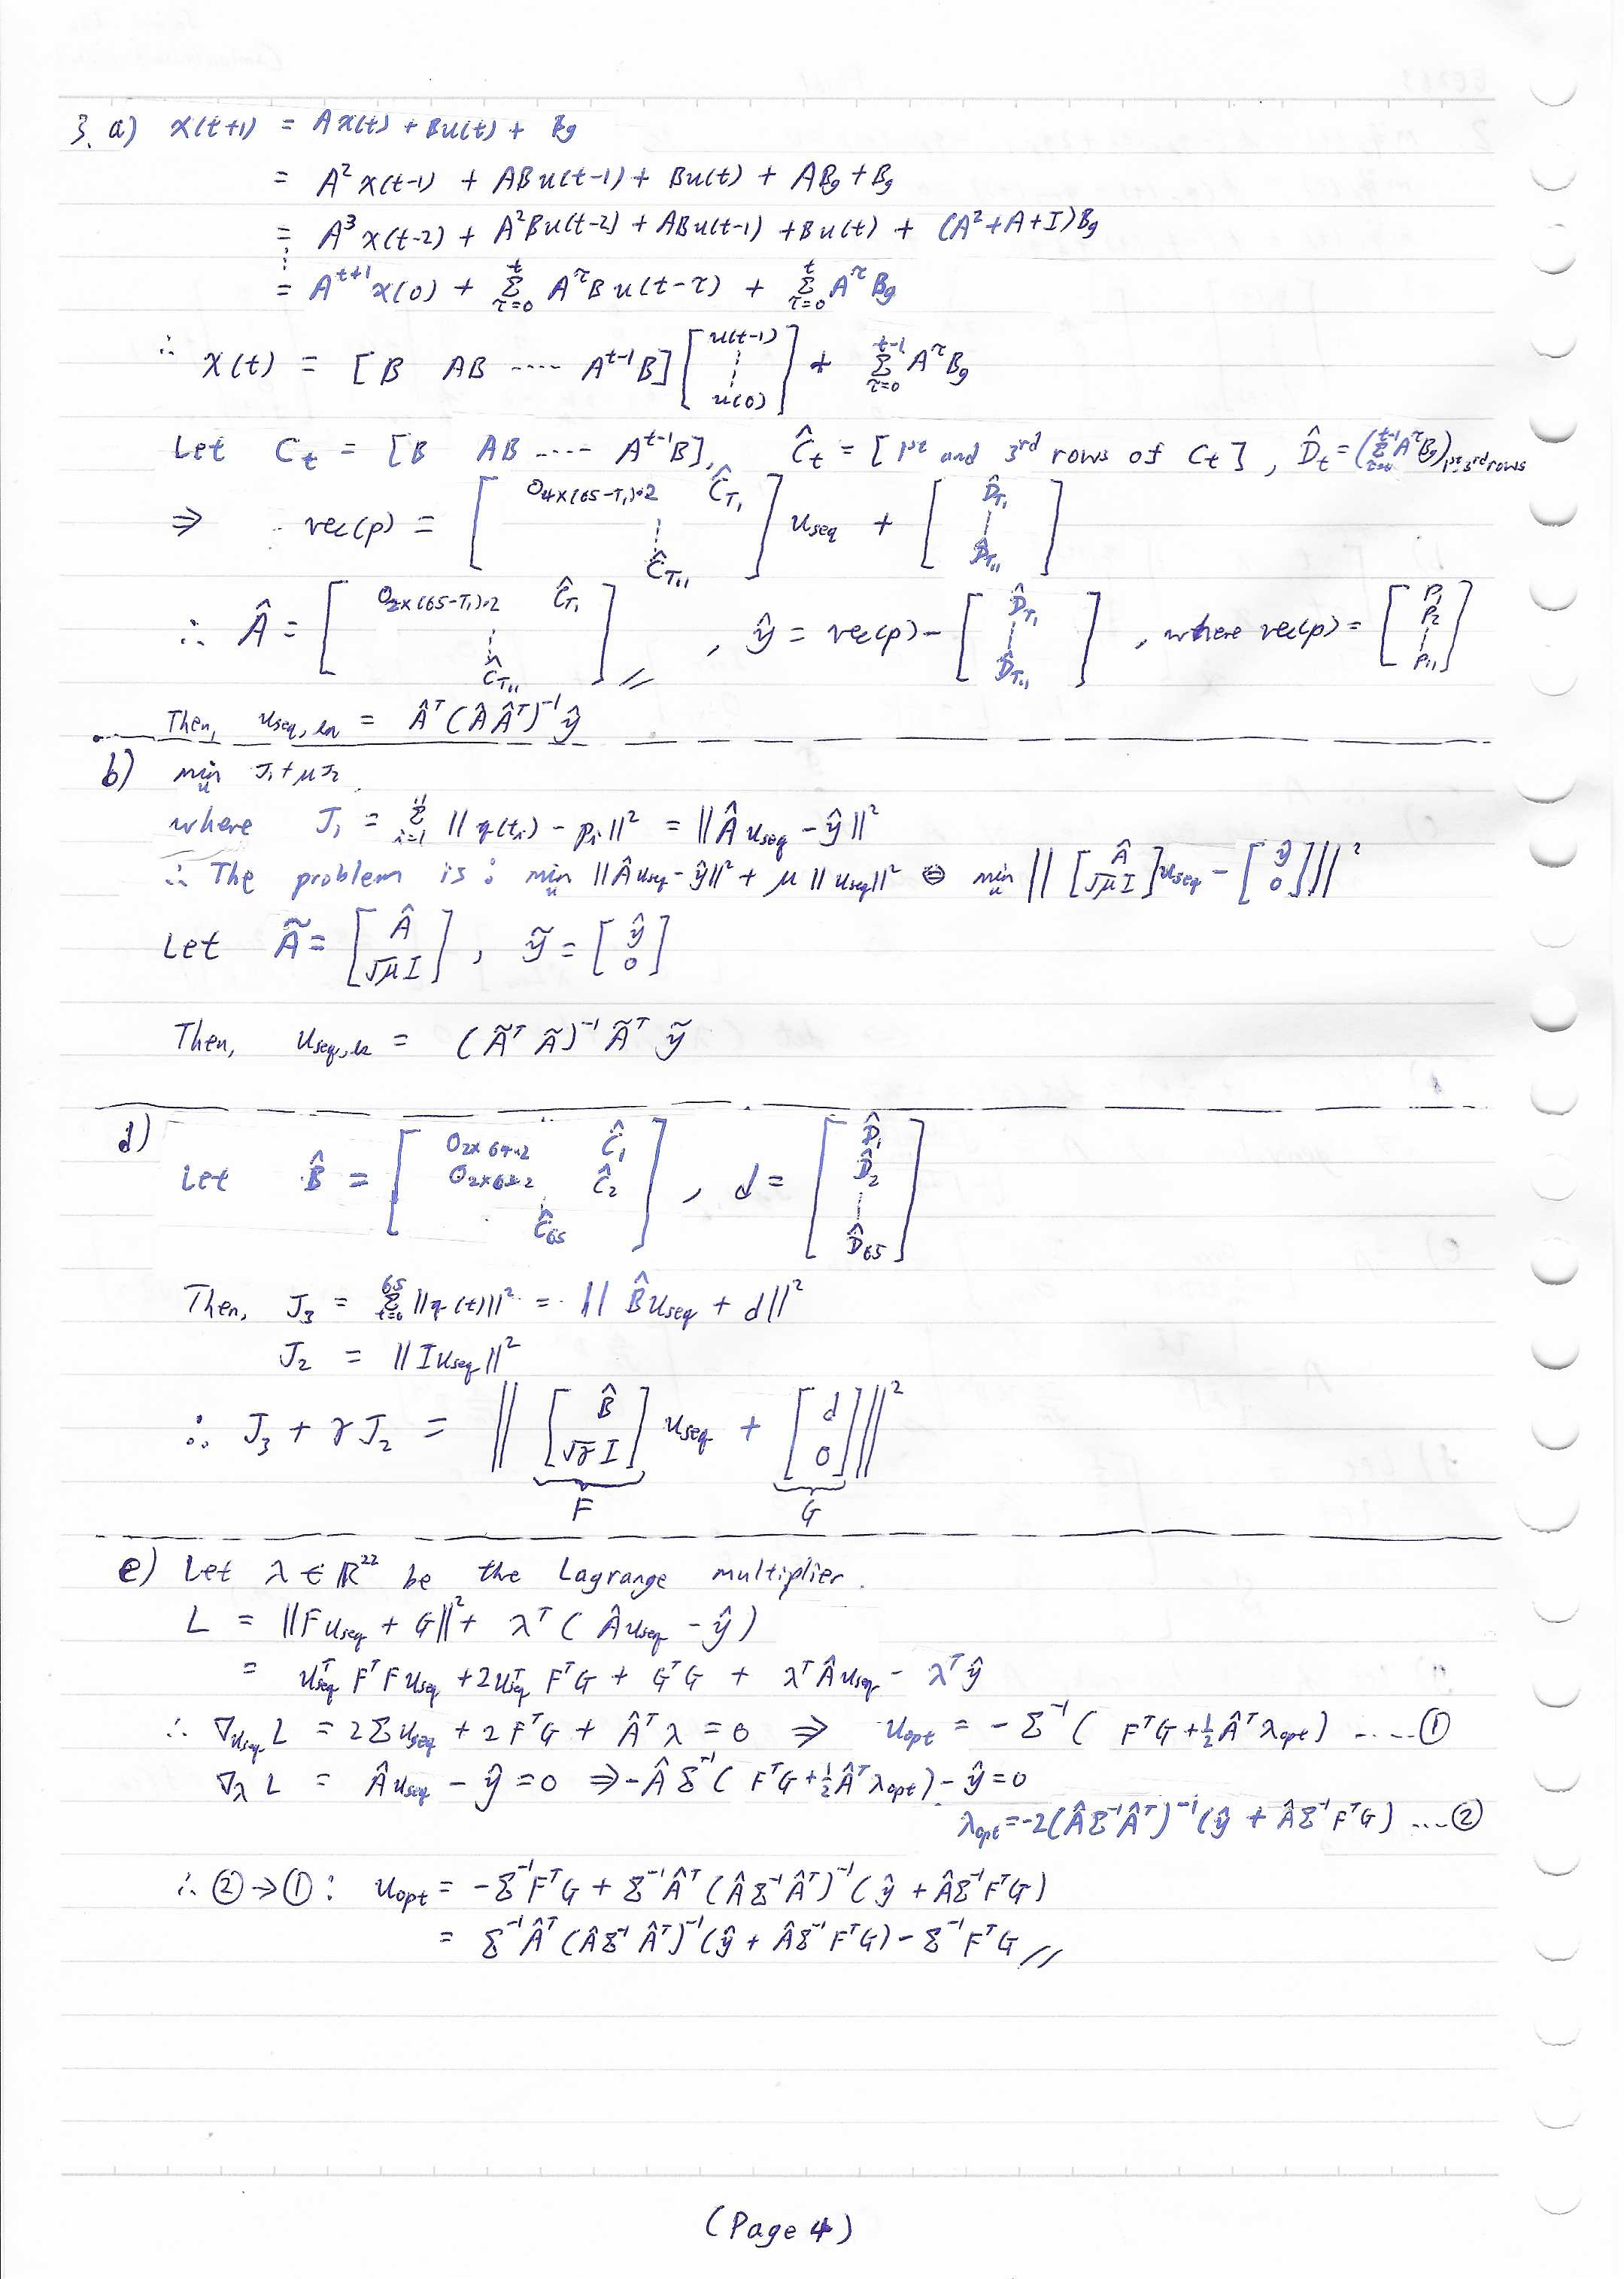 3. a) x(t+1) = Ax(t) + Bu(t) + Bg
= A²x(t-1) + ABu(t-1) + Bu(t) + ABg + Bg
= A³x(t-2) + A²Bu(t-2) + ABu(t-1) + Bu(t) + (A²+A+I)Bg
⋮
= A^{t+1}x(0) + Σ_{τ=0}^{t} A^τ B u(t-τ) + Σ_{τ=0}^{t} A^τ Bg
∴ x(t) = [B AB ---- A^{t-1}B] [u(t-1) ⋮ u(0)] + Σ_{τ=0}^{t-1} A^τ Bg
Let C_t = [B AB ---- A^{t-1}B], Ĉ_t = [1st and 3rd rows of C_t], D̂_t = (Σ_{τ=0}^{t-1} A^τ Bg)_{1st, 3rd rows}
⇒ vec(p) = [O_{4×(65-T₁)·2} Ĉ_{T₁} ⋮ Ĉ_{T₁₁}] u_seq + [D̂_{T₁} ⋮ D̂_{T₁₁}]
∴ Â = [O_{2×(65-T₁)·2} Ĉ_{T₁} ⋮ Ĉ_{T₁₁}] // , ŷ = vec(p) - [D̂_{T₁} ⋮ D̂_{T₁₁}] , where vec(p) = [p₁ p₂ ⋮ p₁₁]
Then, u_{seq,ln} = Â^T(ÂÂ^T)^{-1}ŷ
b) min_u J₁+μJ₂
where J₁ = Σ_{i=1}^{11} ||q(t_i) - p_i||² = ||Âu_seq - ŷ||²
∴ The problem is : min_u ||Âu_seq - ŷ||² + μ||u_seq||² ⇔ min_u ||[Â √μI]u_seq - [ŷ 0]||²
Let Ã = [Â √μI] , ỹ = [ŷ 0]
Then, u_{seq,ls} = (Ã^T Ã)^{-1} Ã^T ỹ
d)
Let B̂ = [O_{2×64·2} Ĉ₁ O_{2×63·2} Ĉ₂ ⋮ Ĉ₆₅] , d = [D̂₁ D̂₂ ⋮ D̂₆₅]
Then, J₃ = Σ_{t=0}^{65} ||q(t)||² = ||B̂u_seq + d||²
J₂ = ||Iu_seq||²
∴ J₃ + γJ₂ = ||[B̂ √γI] u_seq + [d 0]||²
F G
e) Let λ ∈ ℝ²² be the Lagrange multiplier.
L = ||Fu_seq + G||² + λ^T(Âu_seq - ŷ)
= u_seq^T F^T F u_seq + 2u_seq^T F^T G + G^T G + λ^T Âu_seq - λ^T ŷ
∴ ∇_{u_seq} L = 2Σu_seq + 2F^T G + Â^T λ = 0 ⇒ u_opt = -Σ^{-1}(F^T G + ½Â^T λ_opt) ---- ①
∇_λ L = Âu_seq - ŷ = 0 ⇒ -ÂΣ^{-1}(F^T G + ½Â^T λ_opt) - ŷ = 0
λ_opt = -2(ÂΣ^{-1}Â^T)^{-1}(ŷ + ÂΣ^{-1}F^T G) ---- ②
∴ ②→①: u_opt = -Σ^{-1}F^T G + Σ^{-1}Â^T(ÂΣ^{-1}Â^T)^{-1}(ŷ + ÂΣ^{-1}F^T G)
= Σ^{-1}Â^T(ÂΣ^{-1}Â^T)^{-1}(ŷ + ÂΣ^{-1}F^T G) - Σ^{-1}F^T G //
(Page 4)